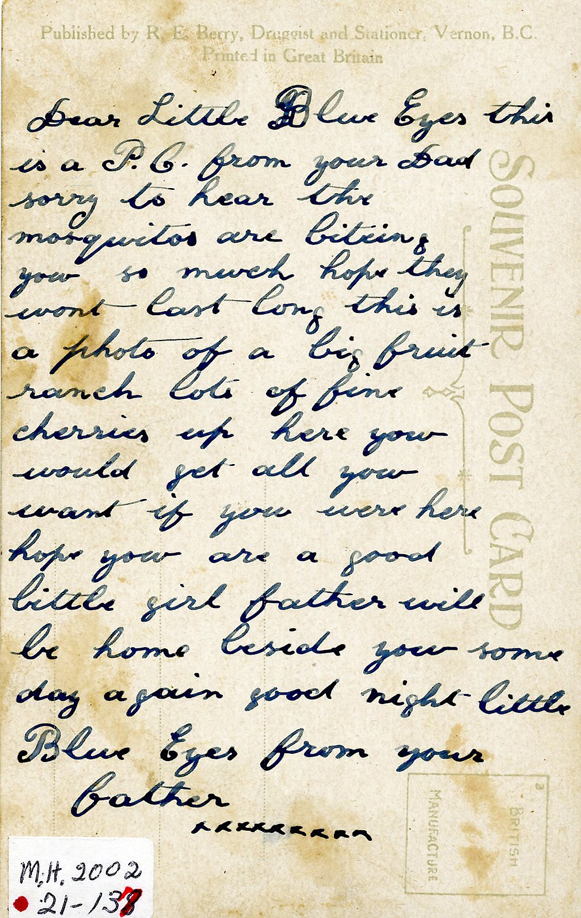 Published by R. E. Berry, Druggist and Stationer, Vernon, B.C.
Printed in Great Britain
Dear Little Blue Eyes this
is a P.C. from your Dad
sorry to hear the
mosquitos are biteing
you so much hope they
wont last long this is
a photo of a big fruit
ranch lots of fine
cherries up here you
would get all you
want if you were here
hope you are a good
little girl father will
be home beside you some
day again good night little
Blue Eyes from your
father
xxxxxxxxxx
SOUVENIR POST CARD
BRITISH
MANUFACTURE
M.H. 2002
21-137